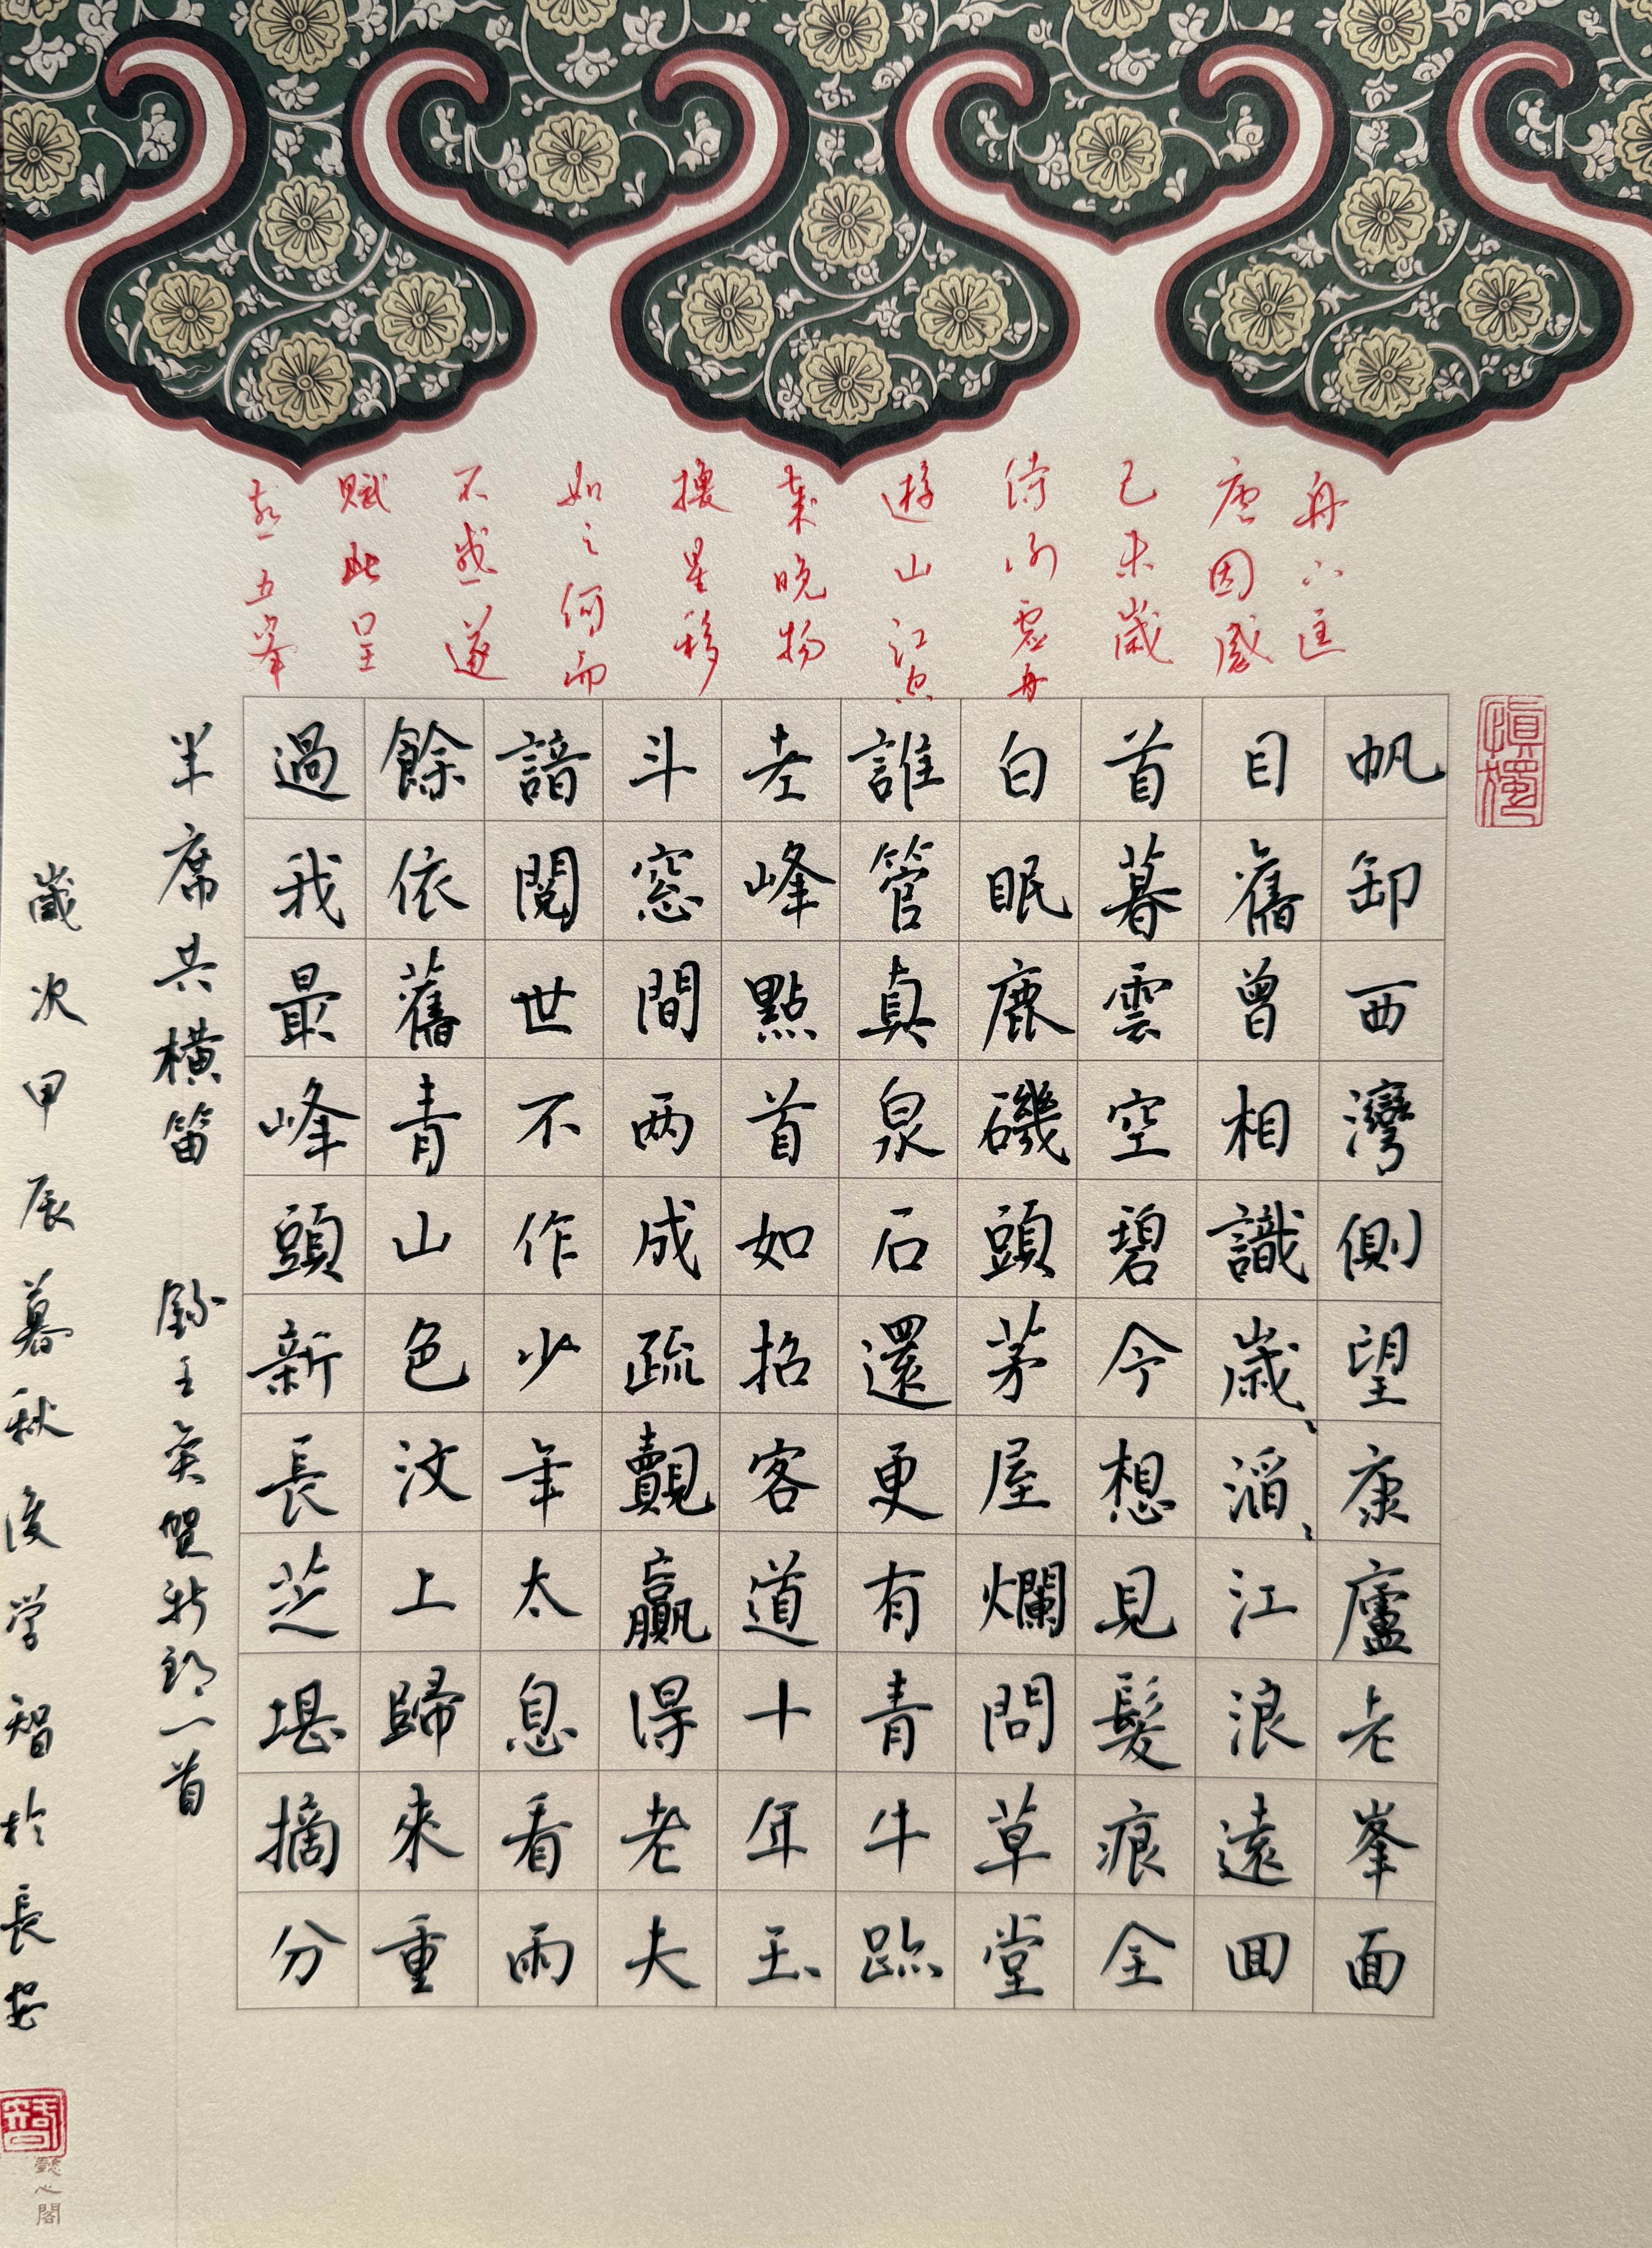 舟下匡
庐因感
己未歲
侍何雲舟
遊山江空
歲晚物
換星移
如之何而
不感遂
賦此呈
燕五峯
慎獨
帆卸西灣側望康廬老峯面
目舊曾相識歲滔江浪遠回
首暮雲空碧今想見髮痕全
白眠鹿磯頭茅屋爛問草堂
誰管真泉石還更有青牛跡
老峰點首如招客道十年玉
斗窓間两成疏覿贏得老夫
諳閱世不作少年太息看雨
餘依舊青山色汶上歸來重
過我最峰頭新長芝堪摘分
半席共橫笛 錄王奕賀新郎一首
歲次甲辰暮秋後学智於長安
懿心閣